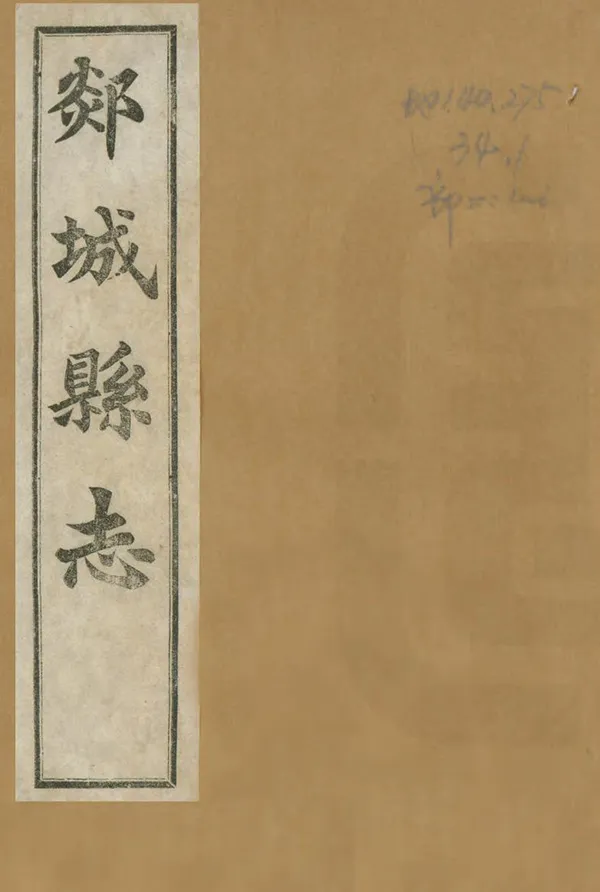 郯城縣志
34.1